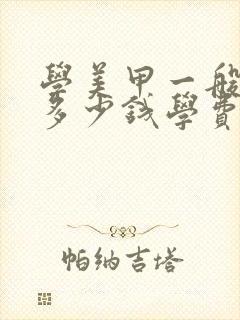 學美甲一般
多少錢學費
帕納吉塔